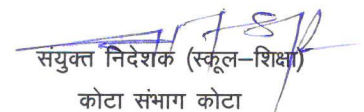 संयुक्त निदेशक (स्कूल–शिक्षा)
कोटा संभाग कोटा